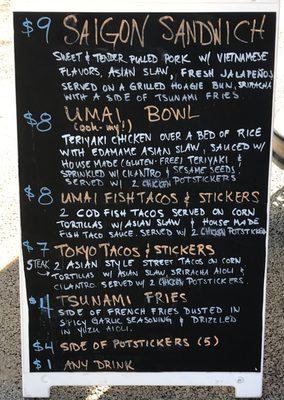 $9 SAIGON SANDWICH
SWEET & TENDER PULLED PORK W/ VIETNAMESE
FLAVORS, ASIAN SLAW, FRESH JALAPEÑOS
SERVED ON A GRILLED HOAGIE BUN, SRIRACHA
WITH A SIDE OF TSUNAMI FRIES.
$8 UMAI BOWL
(ooh-my!)
TERIYAKI CHICKEN OVER A BED OF RICE
WITH EDAMAME ASIAN SLAW, SAUCED W/
HOUSE MADE (GLUTEN-FREE) TERIYAKI &
SPRINKLED W/ CILANTRO & SESAME SEEDS!
SERVED W/ 2 CHICKEN POTSTICKERS
$8 UMAI FISH TACOS & STICKERS
2 COD FISH TACOS SERVED ON CORN
TORTILLAS W/ ASIAN SLAW & HOUSE MADE
FISH TACO SAUCE. SERVED W/ 2 CHICKEN POTSTICKERS
$7 TOKYO TACOS & STICKERS
STEAK 2 ASIAN STYLE STREET TACOS ON CORN
TORTILLAS W/ ASIAN SLAW, SRIRACHA AIOLI &
CILANTRO. SERVED W/ 2 CHICKEN POTSTICKERS
$4 TSUNAMI FRIES
SIDE OF FRENCH FRIES DUSTED IN
SPICY GARLIC SEASONING & DRIZZLED
IN YUZU AIOLI.
$4 SIDE OF POTSTICKERS (5)
$1 ANY DRINK